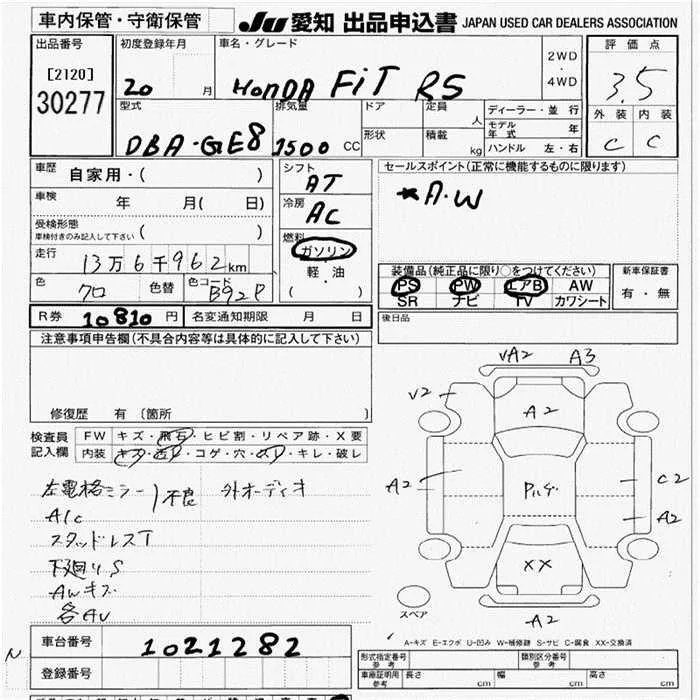 車内保管・守衛保管
JU 愛知 出品申込書 JAPAN USED CAR DEALERS ASSOCIATION
出品番号 初度登録年月 車名・グレード 評価点
[2120] 2WD
・
30277 20 月 HONDA FiT RS 4WD 3.5
型式 排気量 ドア 定員 人 ディーラー・並行 外装 内装
モデル年式 年
DBA-GE8 1500 CC 形状 積載 kg ハンドル 左・右 C C
車歴 自家用・( ) シフト AT セールスポイント(正常に機能するものに限ります)
車検 年 月( 日) 冷房 AC A・W
受検形態
車検付きのみ記入して下さい ( ) 燃料
走行 13万6千962km ガソリン 装備品(純正品に限り○をつけてください) 新車保証書
軽・油 PS PW エアB AW 有・無
色 クロ 色替 色コード B92P ( ) SR ナビ TV カワシート
R券 10810 円 名変通知期限 月 日 後日品
注意事項申告欄(不具合内容等は具体的に記入して下さい)
修復歴 有 〔箇所 〕
検査員 FW キズ・飛石・ヒビ割・リペア跡・X要
記入欄 内装 キズ・ ・コゲ・穴・ ・キレ・破レ
左電格ミラー 不良 外オーディオ
A/c
スタッドレスT
下廻りS
AWキズ
各AU
VA2 A3
V2 A2
A2 C2
A2
XX
スペア A2
A-キズ E-エクボ U-凹み W-補修跡 S-サビ C-腐食 XX-交換済
N 車台番号 1021282
登録番号
形式指定番号 参考 類別区分番号 参考
車庫証明用 参考 長さ cm 幅 cm 高さ cm